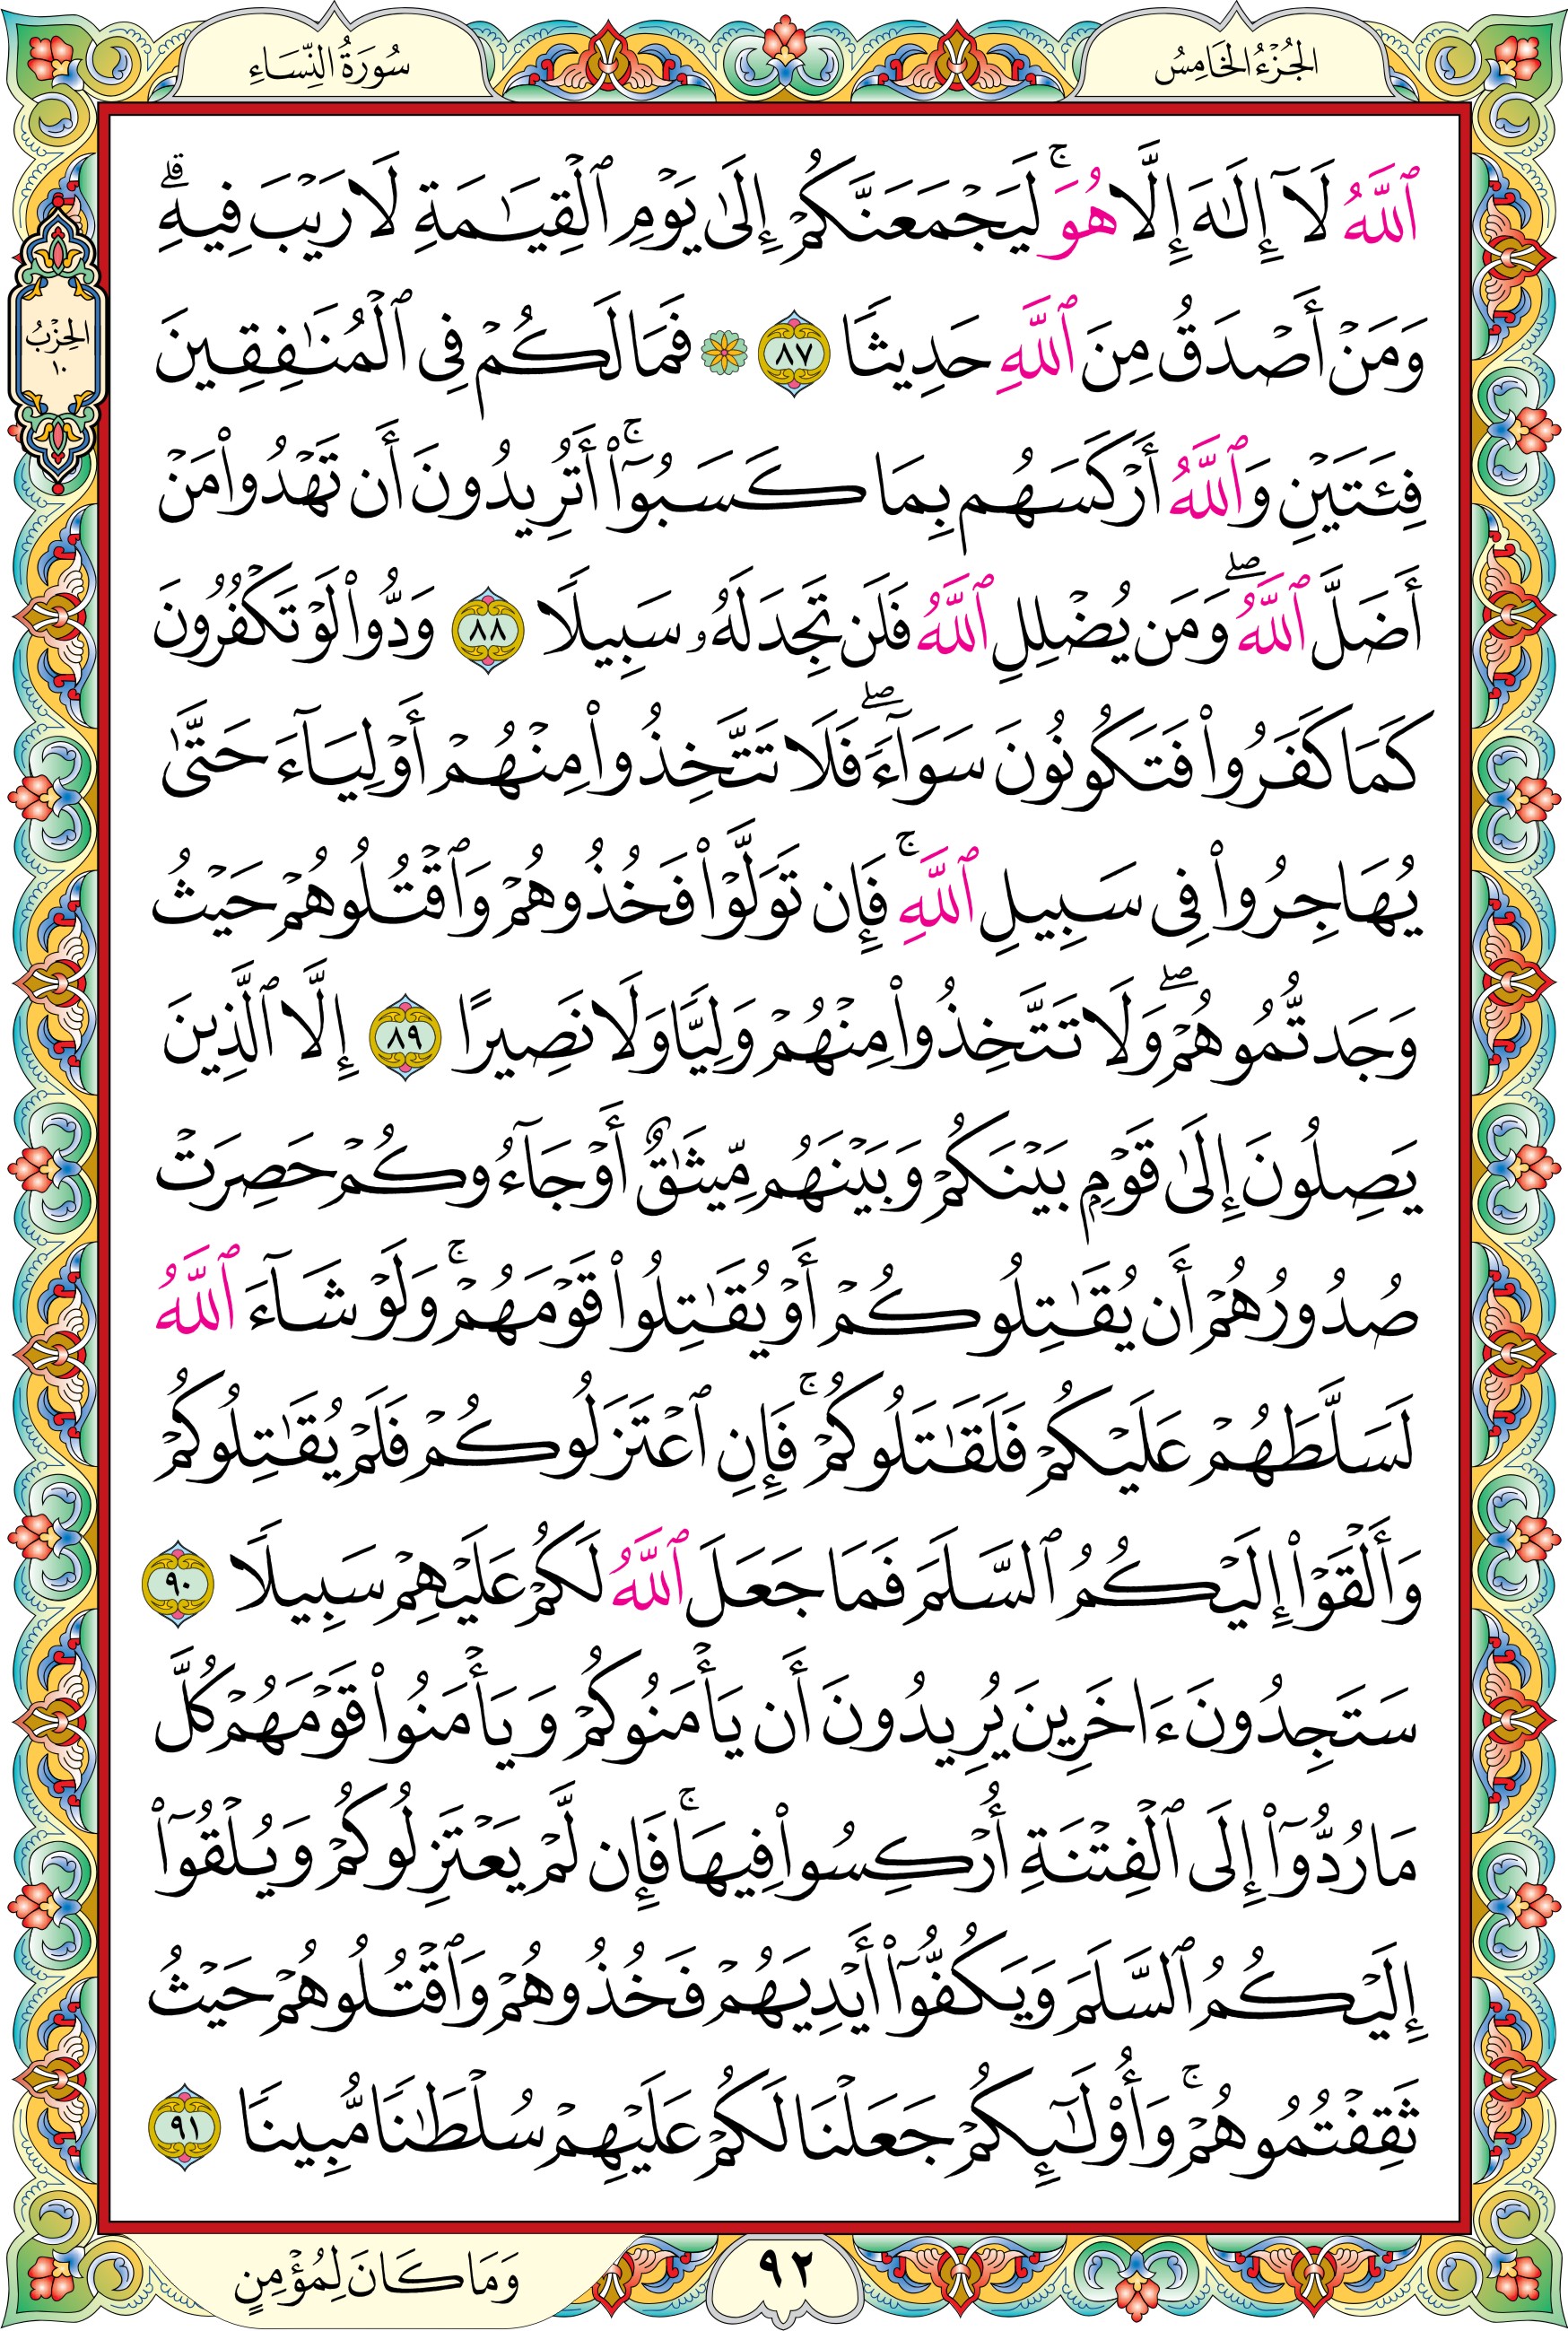 الجُزْءُ الخَامِسُ
سُورَةُ النِّسَاءِ
ٱللَّهُ لَآ إِلَٰهَ إِلَّا هُوَۚ لَيَجْمَعَنَّكُمْ إِلَىٰ يَوْمِ ٱلْقِيَٰمَةِ لَا رَيْبَ فِيهِۗ
وَمَنْ أَصْدَقُ مِنَ ٱللَّهِ حَدِيثًا ٨٧ ۞ فَمَا لَكُمْ فِى ٱلْمُنَٰفِقِينَ
فِئَتَيْنِ وَٱللَّهُ أَرْكَسَهُم بِمَا كَسَبُوٓا۟ۚ أَتُرِيدُونَ أَن تَهْدُوا۟ مَنْ
أَضَلَّ ٱللَّهُۖ وَمَن يُضْلِلِ ٱللَّهُ فَلَن تَجِدَ لَهُۥ سَبِيلًا ٨٨ وَدُّوا۟ لَوْ تَكْفُرُونَ
كَمَا كَفَرُوا۟ فَتَكُونُونَ سَوَآءًۖ فَلَا تَتَّخِذُوا۟ مِنْهُمْ أَوْلِيَآءَ حَتَّىٰ
يُهَاجِرُوا۟ فِى سَبِيلِ ٱللَّهِۚ فَإِن تَوَلَّوْا۟ فَخُذُوهُمْ وَٱقْتُلُوهُمْ حَيْثُ
وَجَدتُّمُوهُمْۖ وَلَا تَتَّخِذُوا۟ مِنْهُمْ وَلِيًّا وَلَا نَصِيرًا ٨٩ إِلَّا ٱلَّذِينَ
يَصِلُونَ إِلَىٰ قَوْمٍۭ بَيْنَكُمْ وَبَيْنَهُم مِّيثَٰقٌ أَوْ جَآءُوكُمْ حَصِرَتْ
صُدُورُهُمْ أَن يُقَٰتِلُوكُمْ أَوْ يُقَٰتِلُوا۟ قَوْمَهُمْۚ وَلَوْ شَآءَ ٱللَّهُ
لَسَلَّطَهُمْ عَلَيْكُمْ فَلَقَٰتَلُوكُمْۚ فَإِنِ ٱعْتَزَلُوكُمْ فَلَمْ يُقَٰتِلُوكُمْ
وَأَلْقَوْا۟ إِلَيْكُمُ ٱلسَّلَمَ فَمَا جَعَلَ ٱللَّهُ لَكُمْ عَلَيْهِمْ سَبِيلًا ٩٠
سَتَجِدُونَ ءَاخَرِينَ يُرِيدُونَ أَن يَأْمَنُوكُمْ وَيَأْمَنُوا۟ قَوْمَهُمْ كُلَّ
مَا رُدُّوٓا۟ إِلَى ٱلْفِتْنَةِ أُرْكِسُوا۟ فِيهَاۚ فَإِن لَّمْ يَعْتَزِلُوكُمْ وَيُلْقُوٓا۟
إِلَيْكُمُ ٱلسَّلَمَ وَيَكُفُّوٓا۟ أَيْدِيَهُمْ فَخُذُوهُمْ وَٱقْتُلُوهُمْ حَيْثُ
ثَقِفْتُمُوهُمْۚ وَأُو۟لَٰٓئِكُمْ جَعَلْنَا لَكُمْ عَلَيْهِمْ سُلْطَٰنًا مُّبِينًا ٩١
الحِزْبُ
١٠
٩٢
وَمَا كَانَ لِمُؤْمِنٍ